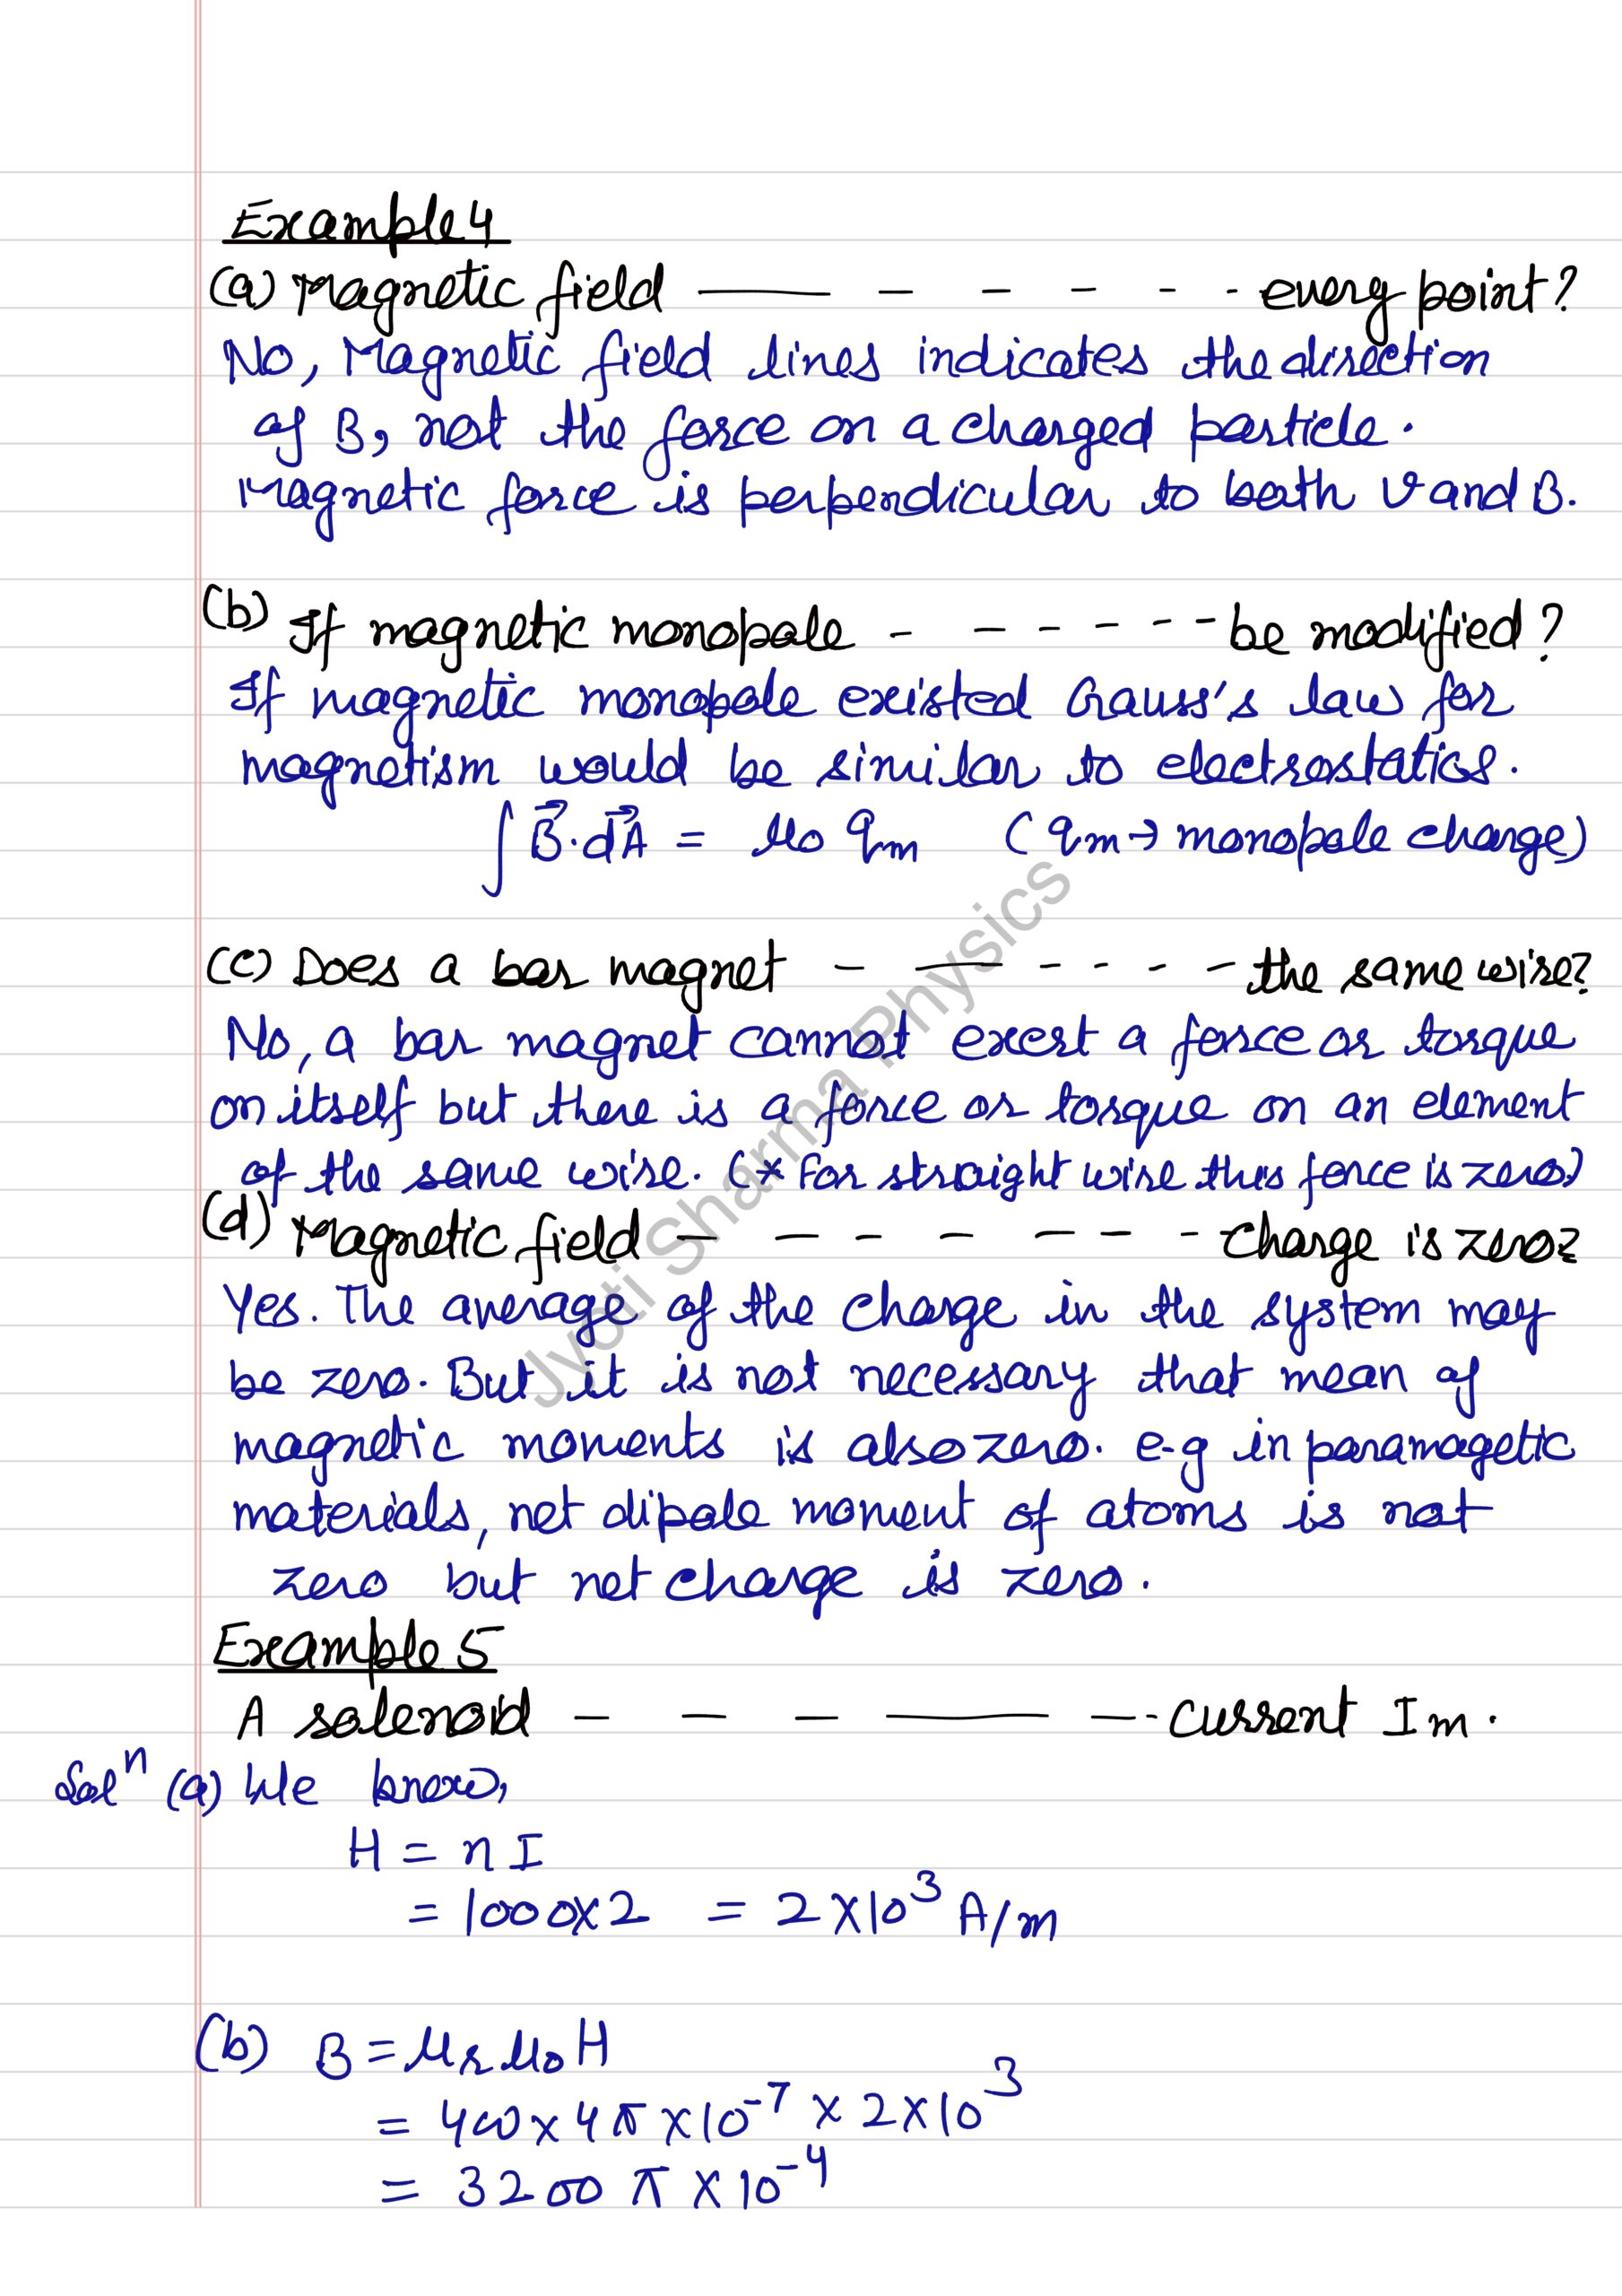 Example 4
(a) Magnetic field ——— - - - - - - every point?
No, Magnetic field lines indicates the direction
of B, not the force on a charged particle.
Magnetic force is perpendicular to both v and B.
(b) If magnetic monopole - - - - - - be modified?
If magnetic monopole existed Gauss's law for
magnetism would be similar to electrostatics.
∫ B⃗·dA⃗ = μ₀ qm (qm → monopole charge)
(c) Does a bar magnet - — - - - - the same wire?
No, a bar magnet cannot exert a force or torque
on itself but there is a force or torque on an element
of the same wire. (* For straight wire this force is zero.)
(d) Magnetic field - - - - - - - - charge is zero?
Yes. The average of the charge in the system may
be zero. But it is not necessary that mean of
magnetic moments is also zero. e-g in paramagetic
materials, net dipole moment of atoms is not
zero but net charge is zero.
Example 5
A solenoid - - - ——— - - current Im.
Solⁿ (a) We know,
H = nI
= 1000x2 = 2x10³ A/m
(b) B = μr μ₀ H
= 400 x 4π x 10⁻⁷ x 2x10³
= 3200 π x 10⁻⁴
Jyoti Sharma Physics